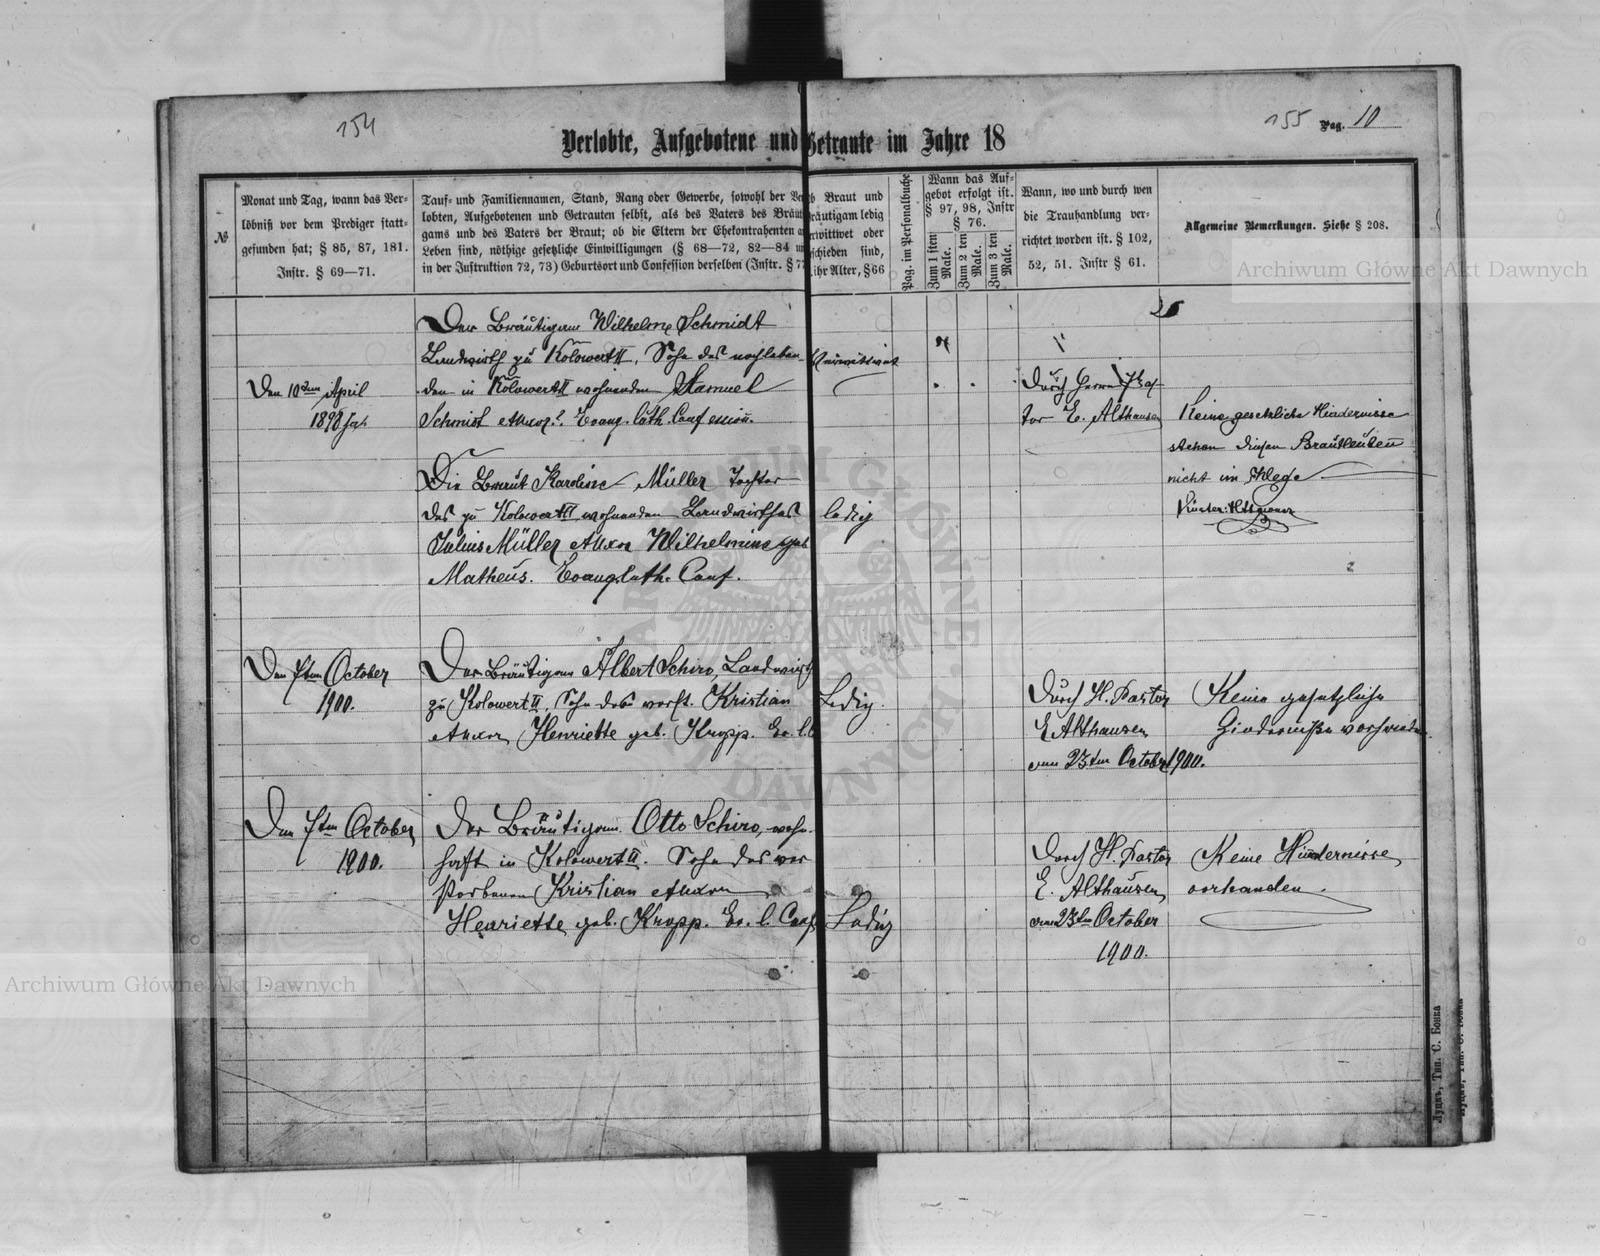 154
155 Pag. 10
Verlobte, Aufgebotene und Getraute im Jahre 18
№
Monat und Tag, wann das Ver-
löbniß vor dem Prediger statt-
gefunden hat; § 85, 87, 181.
Instr. § 69—71.
Tauf- und Familiennamen, Stand, Rang oder Gewerbe, sowohl der Ver
lobten, Aufgebotenen und Getrauten selbst, als des Vaters des Bräut
gams und des Vaters der Braut; ob die Eltern der Ehekontrahenten
Leben sind, nöthige gesetzliche Einwilligungen (§ 68—72, 82—84
in der Instruktion 72, 73) Geburtsort und Confession derselben (Instr. § 77
b Braut und
räutigam ledig
rwittwet oder
schieden sind,
ihr Alter, § 66
Pag. im Personalbuche
Wann das Auf-
gebot erfolgt ist.
§ 97, 98, Instr
§ 76.
Zum 1 sten Male.
Zum 2 ten Male.
Zum 3 ten Male.
Wann, wo und durch wen
die Trauhandlung ver-
richtet worden ist. § 102,
52, 51. Instr § 61.
Allgemeine Bemerkungen. Siehe § 208.
Den 10ten April
1898 Ja.
Der Bräutigam Wilhelm Schmidt
Landwirth zu Kolowert II, Sohn des noch leben-
den in Kolowert II wohnenden Samuel
Schmidt et uxor. Evang. luth. Confession.
Durch Herrn Pas
tor E. Althausen
Keine gesetzliche Hindernisse
stehen diesen Brautleuten
nicht im Wege
Die Braut Karoline Müller Tochter
des zu Kolowert II wohnenden Landwirthes
Julius Müller et uxor Wilhelmine geb
Matheus. Evang. luth. Conf.
ledig
Den 7ten October
1900.
Der Bräutigam Albert Schiro, Landwirth
zu Kolowert II, Sohn des verst. Kristian
et uxor Henriette geb. Kropp. Ev. l. C
Ledig.
Durch H. Pastor
E. Althausen
am 23ten October 1900.
Keine gesetzliche
Hinderniße vorhanden.
Den 7ten October
1900.
Der Bräutigam Otto Schiro, wohn-
haft in Kolowert II. Sohn des ver
storbenen Kristian et uxor
Henriette geb. Kropp. Ev. l. Conf
Ledig
Durch H. Pastor
E. Althausen
am 23ten October
1900.
Keine Hindernisse
vorhanden.
Луцкъ, Тип. С. Бонка
Archiwum Główne Akt Dawnych
Archiwum Główne Akt Dawnych
ARCHIWUM GŁÓWNE AKT DAWNYCH